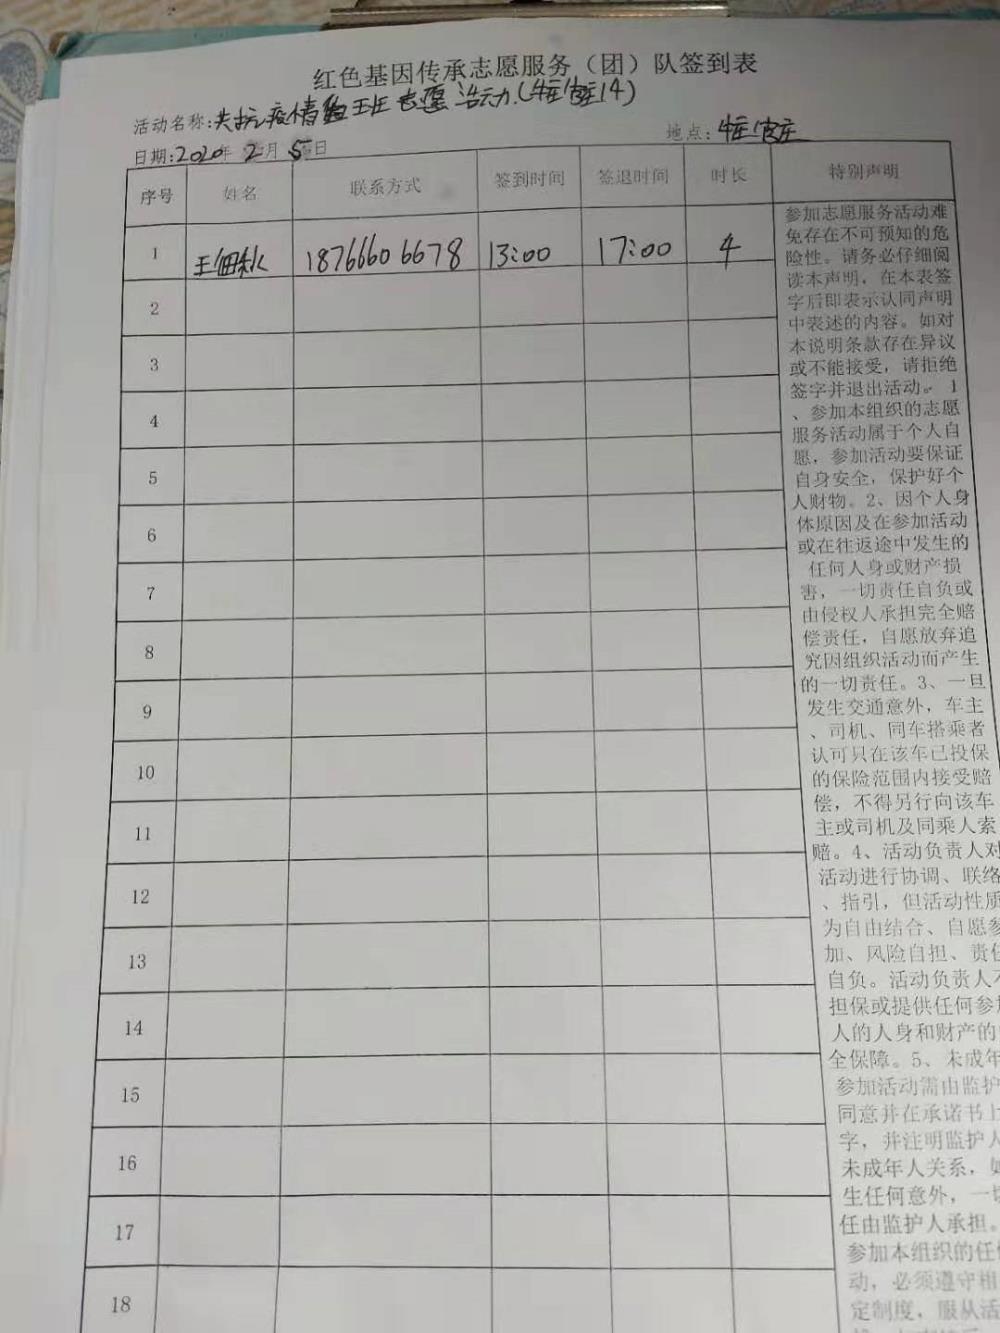 红色基因传承志愿服务（团）队签到表
活动名称:共抗疫情 班志愿活动(
日期:2020年2月5日 地点:
序号 姓名 联系方式 签到时间 签退时间 时长 特别声明
1 王佃秋 18766606678 13:00 17:00 4
2
3
4
5
6
7
8
9
10
11
12
13
14
15
16
17
18
参加志愿服务活动难
免存在不可预知的危
险性。请务必仔细阅
读本声明，在本表签
字后即表示认同声明
中表述的内容。如对
本说明条款存在异议
或不能接受，请拒绝
签字并退出活动。 1
、参加本组织的志愿
服务活动属于个人自
愿，参加活动要保证
自身安全，保护好个
人财物。2、因个人身
体原因及在参加活动
或在往返途中发生的
任何人身或财产损
害，一切责任自负或
由侵权人承担完全赔
偿责任，自愿放弃追
究因组织活动而产生
的一切责任。3、一旦
发生交通意外，车主
、司机、同车搭乘者
认可只在该车已投保
的保险范围内接受赔
偿，不得另行向该车
主或司机及同乘人索
赔。4、活动负责人对
活动进行协调、联络
、指引，但活动性质
为自由结合、自愿参
加、风险自担、责任
自负。活动负责人不
担保或提供任何参加
人的人身和财产的
全保障。5、未成年
参加活动需由监护
同意并在承诺书上
字，并注明监护人
未成年人关系，如
生任何意外，一切
任由监护人承担。
参加本组织的任何
动，必须遵守相
定制度，服从活